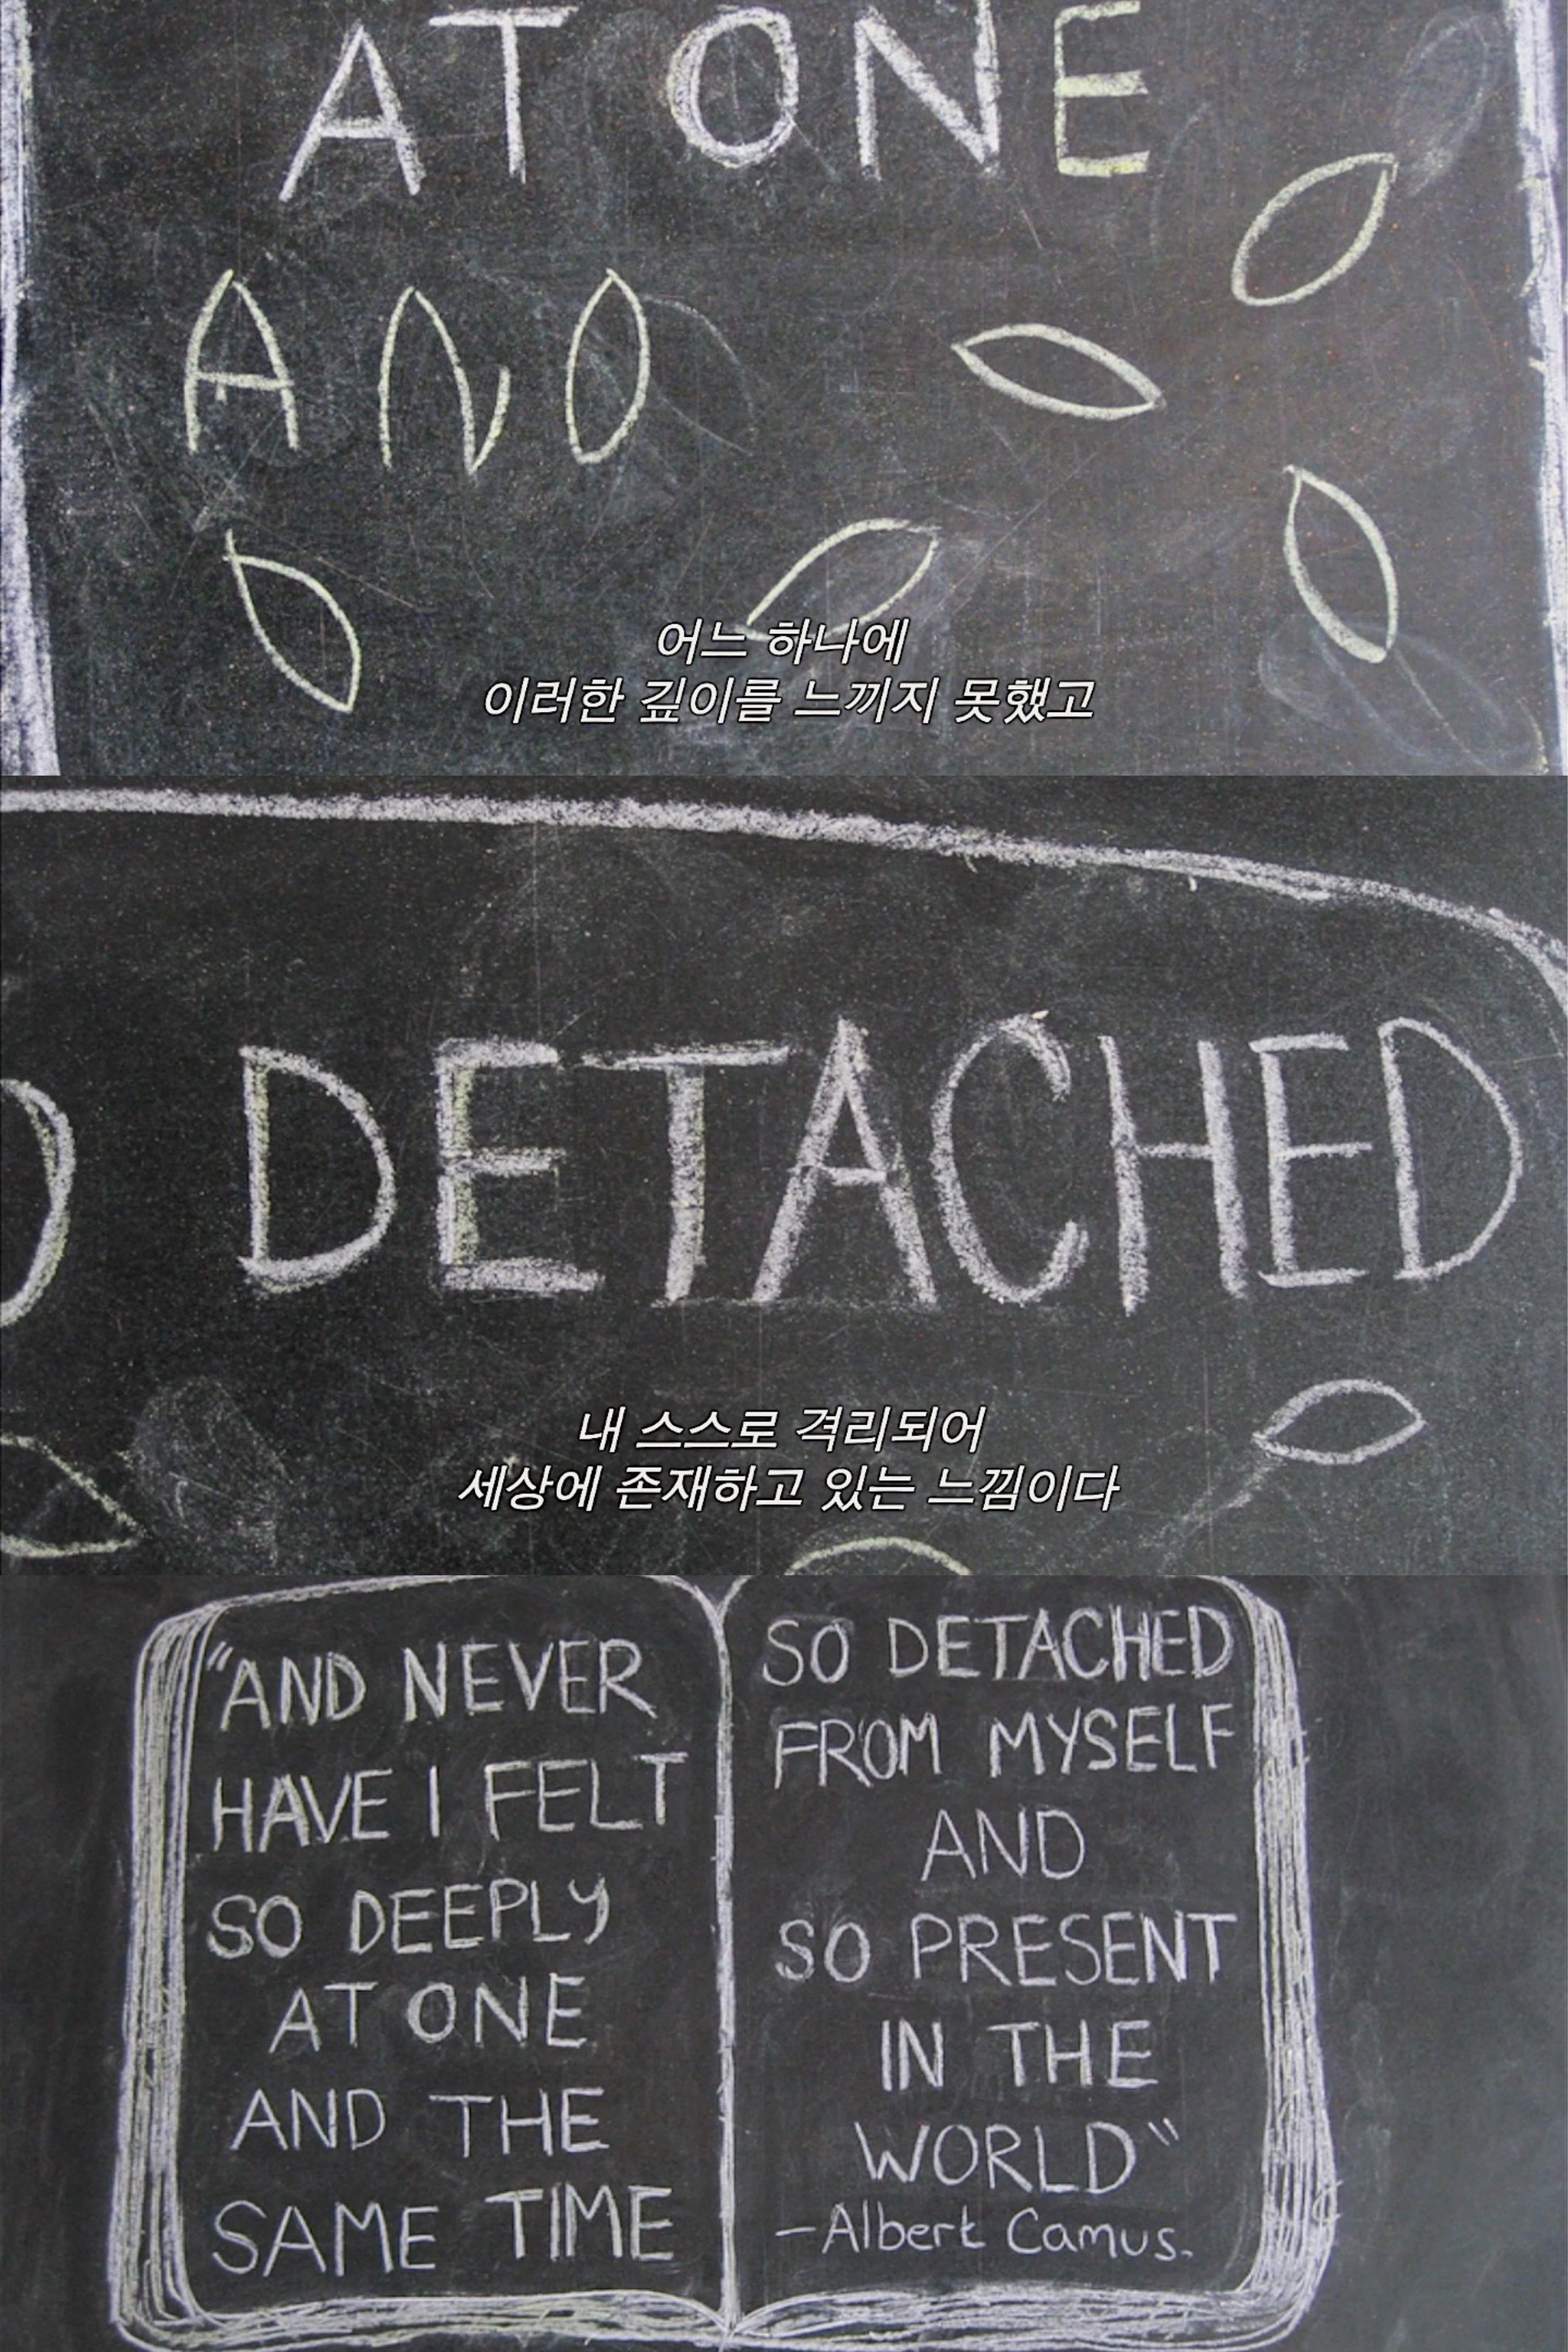 AT ONE
AND
어느 하나에
이러한 깊이를 느끼지 못했고
DETACHED
내 스스로 격리되어
세상에 존재하고 있는 느낌이다
"AND NEVER
HAVE I FELT
SO DEEPLY
AT ONE
AND THE
SAME TIME
SO DETACHED
FROM MYSELF
AND
SO PRESENT
IN THE
WORLD"
-Albert Camus.